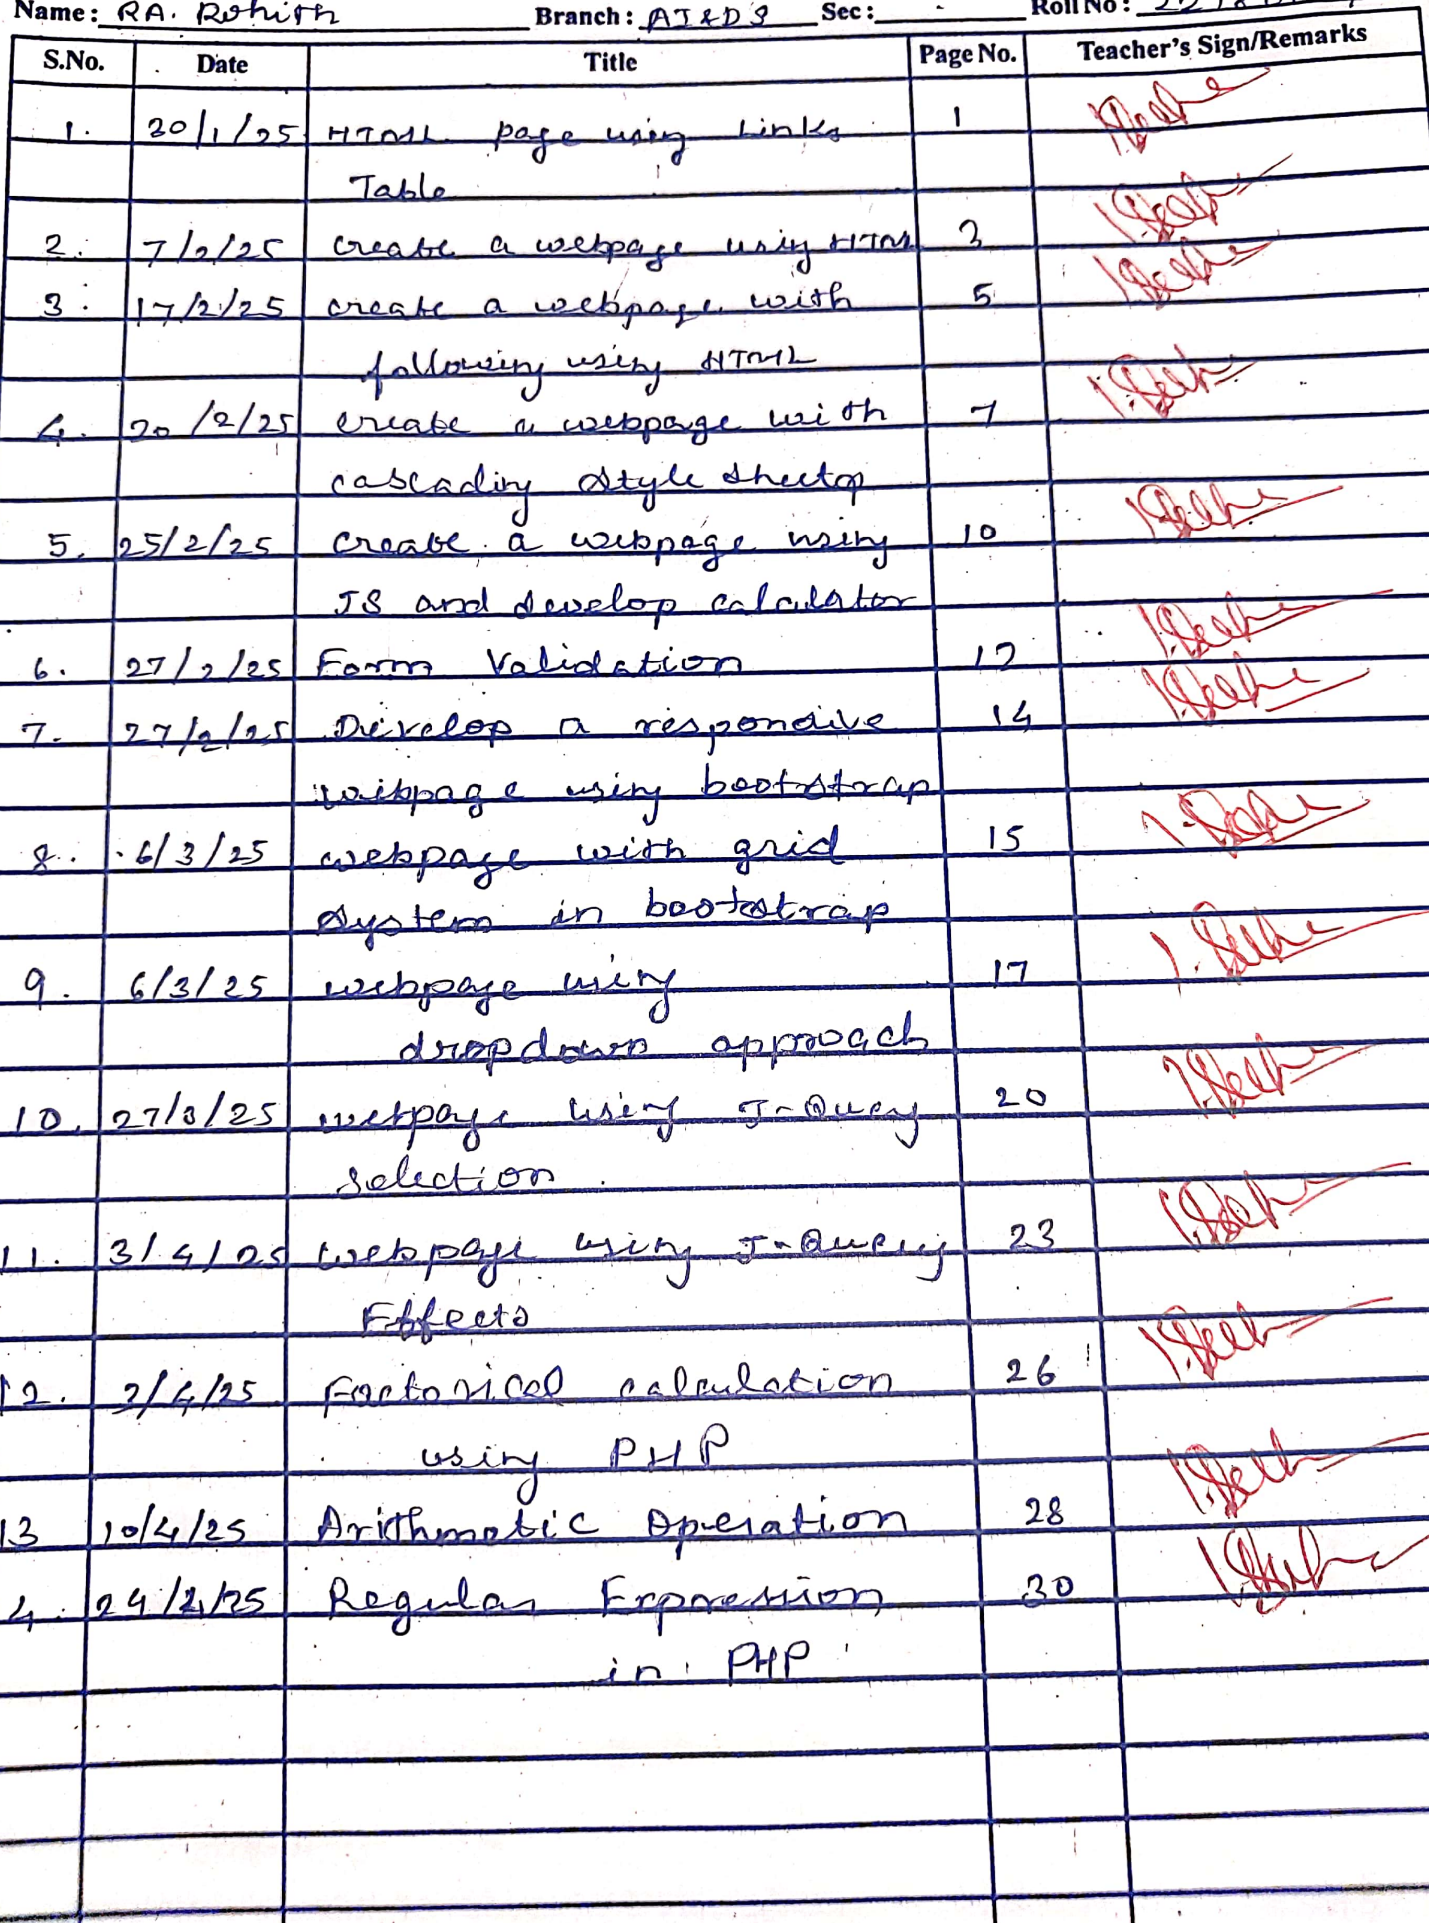 Name: RA. Rohith Branch: AI&DS Sec: Roll No:
S.No. Date Title Page No. Teacher's Sign/Remarks
1. 30/1/25 HTML page using Links 1
Table
2. 7/2/25 create a webpage using HTML 3
3. 17/2/25 create a webpage with 5
following using HTML
4. 20/2/25 create a webpage with 7
cascading style sheets
5. 25/2/25 create a webpage using 10
JS and develop calculator
6. 27/2/25 Form Validation 12
7. 27/2/25 Develop a responsive 14
webpage using bootstrap
8. 6/3/25 webpage with grid 15
system in bootstrap
9. 6/3/25 webpage using 17
dropdown approach
10. 27/3/25 webpage using J-Query 20
selection
11. 3/4/25 webpage using J-Query 23
Effects
12. 3/4/25 Factorical calculation 26
using PHP
13 10/4/25 Arithmetic Operation 28
4. 24/4/25 Regular Expression 30
in PHP